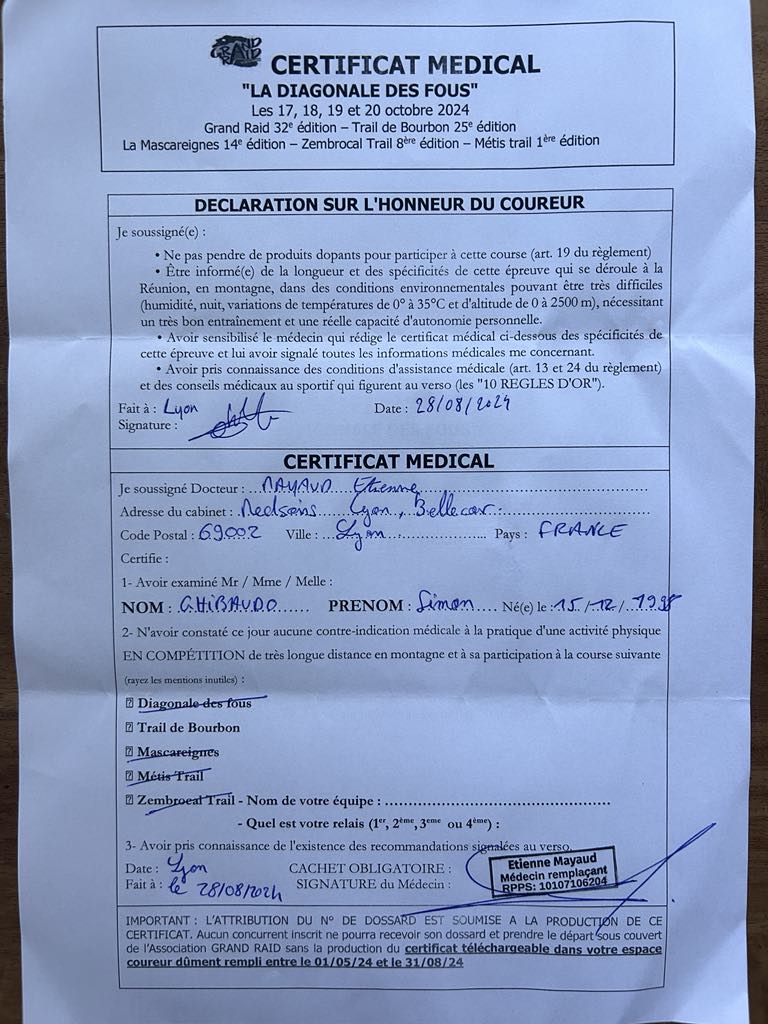 GRAND RAID
CERTIFICAT MEDICAL
"LA DIAGONALE DES FOUS"
Les 17, 18, 19 et 20 octobre 2024
Grand Raid 32e édition – Trail de Bourbon 25e édition
La Mascareignes 14e édition – Zembrocal Trail 8ère édition – Métis trail 1ère édition
DECLARATION SUR L'HONNEUR DU COUREUR
Je soussigné(e) :
• Ne pas pendre de produits dopants pour participer à cette course (art. 19 du règlement)
• Être informé(e) de la longueur et des spécificités de cette épreuve qui se déroule à la
Réunion, en montagne, dans des conditions environnementales pouvant être très difficiles
(humidité, nuit, variations de températures de 0° à 35°C et d'altitude de 0 à 2500 m), nécessitant
un très bon entraînement et une réelle capacité d'autonomie personnelle.
• Avoir sensibilisé le médecin qui rédige le certificat médical ci-dessous des spécificités de
cette épreuve et lui avoir signalé toutes les informations médicales me concernant.
• Avoir pris connaissance des conditions d'assistance médicale (art. 13 et 24 du règlement)
et des conseils médicaux au sportif qui figurent au verso (les "10 REGLES D'OR").
Fait à : Lyon Date : 28/08/2024
Signature :
CERTIFICAT MEDICAL
Je soussigné Docteur : MAYAUD Etienne
Adresse du cabinet : Medsoins Lyon, Bellecour
Code Postal : 69002 Ville : Lyon Pays : FRANCE
Certifie :
1- Avoir examiné Mr / Mme / Melle :
NOM : GHIBAUDO PRENOM : Simon Né(e) le : 15/12/1998
2- N'avoir constaté ce jour aucune contre-indication médicale à la pratique d'une activité physique
EN COMPÉTITION de très longue distance en montagne et à sa participation à la course suivante
(rayez les mentions inutiles) :
Diagonale des fous
Trail de Bourbon
Mascareignes
Métis Trail
Zembrocal Trail - Nom de votre équipe :
- Quel est votre relais (1er, 2ème, 3eme ou 4ème) :
3- Avoir pris connaissance de l'existence des recommandations signalées au verso.
Date : Lyon CACHET OBLIGATOIRE :
Fait à : le 28/08/2024 SIGNATURE du Médecin :
Etienne Mayaud
Médecin remplaçant
RPPS: 10107106204
IMPORTANT : L'ATTRIBUTION DU N° DE DOSSARD EST SOUMISE A LA PRODUCTION DE CE
CERTIFICAT. Aucun concurrent inscrit ne pourra recevoir son dossard et prendre le départ sous couvert
de l'Association GRAND RAID sans la production du certificat téléchargeable dans votre espace
coureur dûment rempli entre le 01/05/24 et le 31/08/24